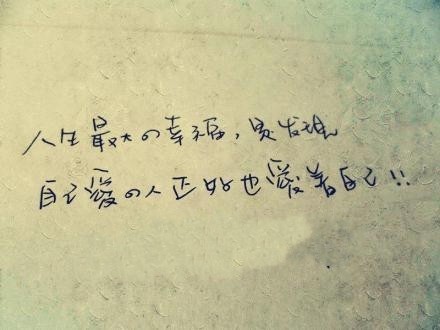 人生最大の幸福，是发现
自己愛の人正好也愛着自己!!